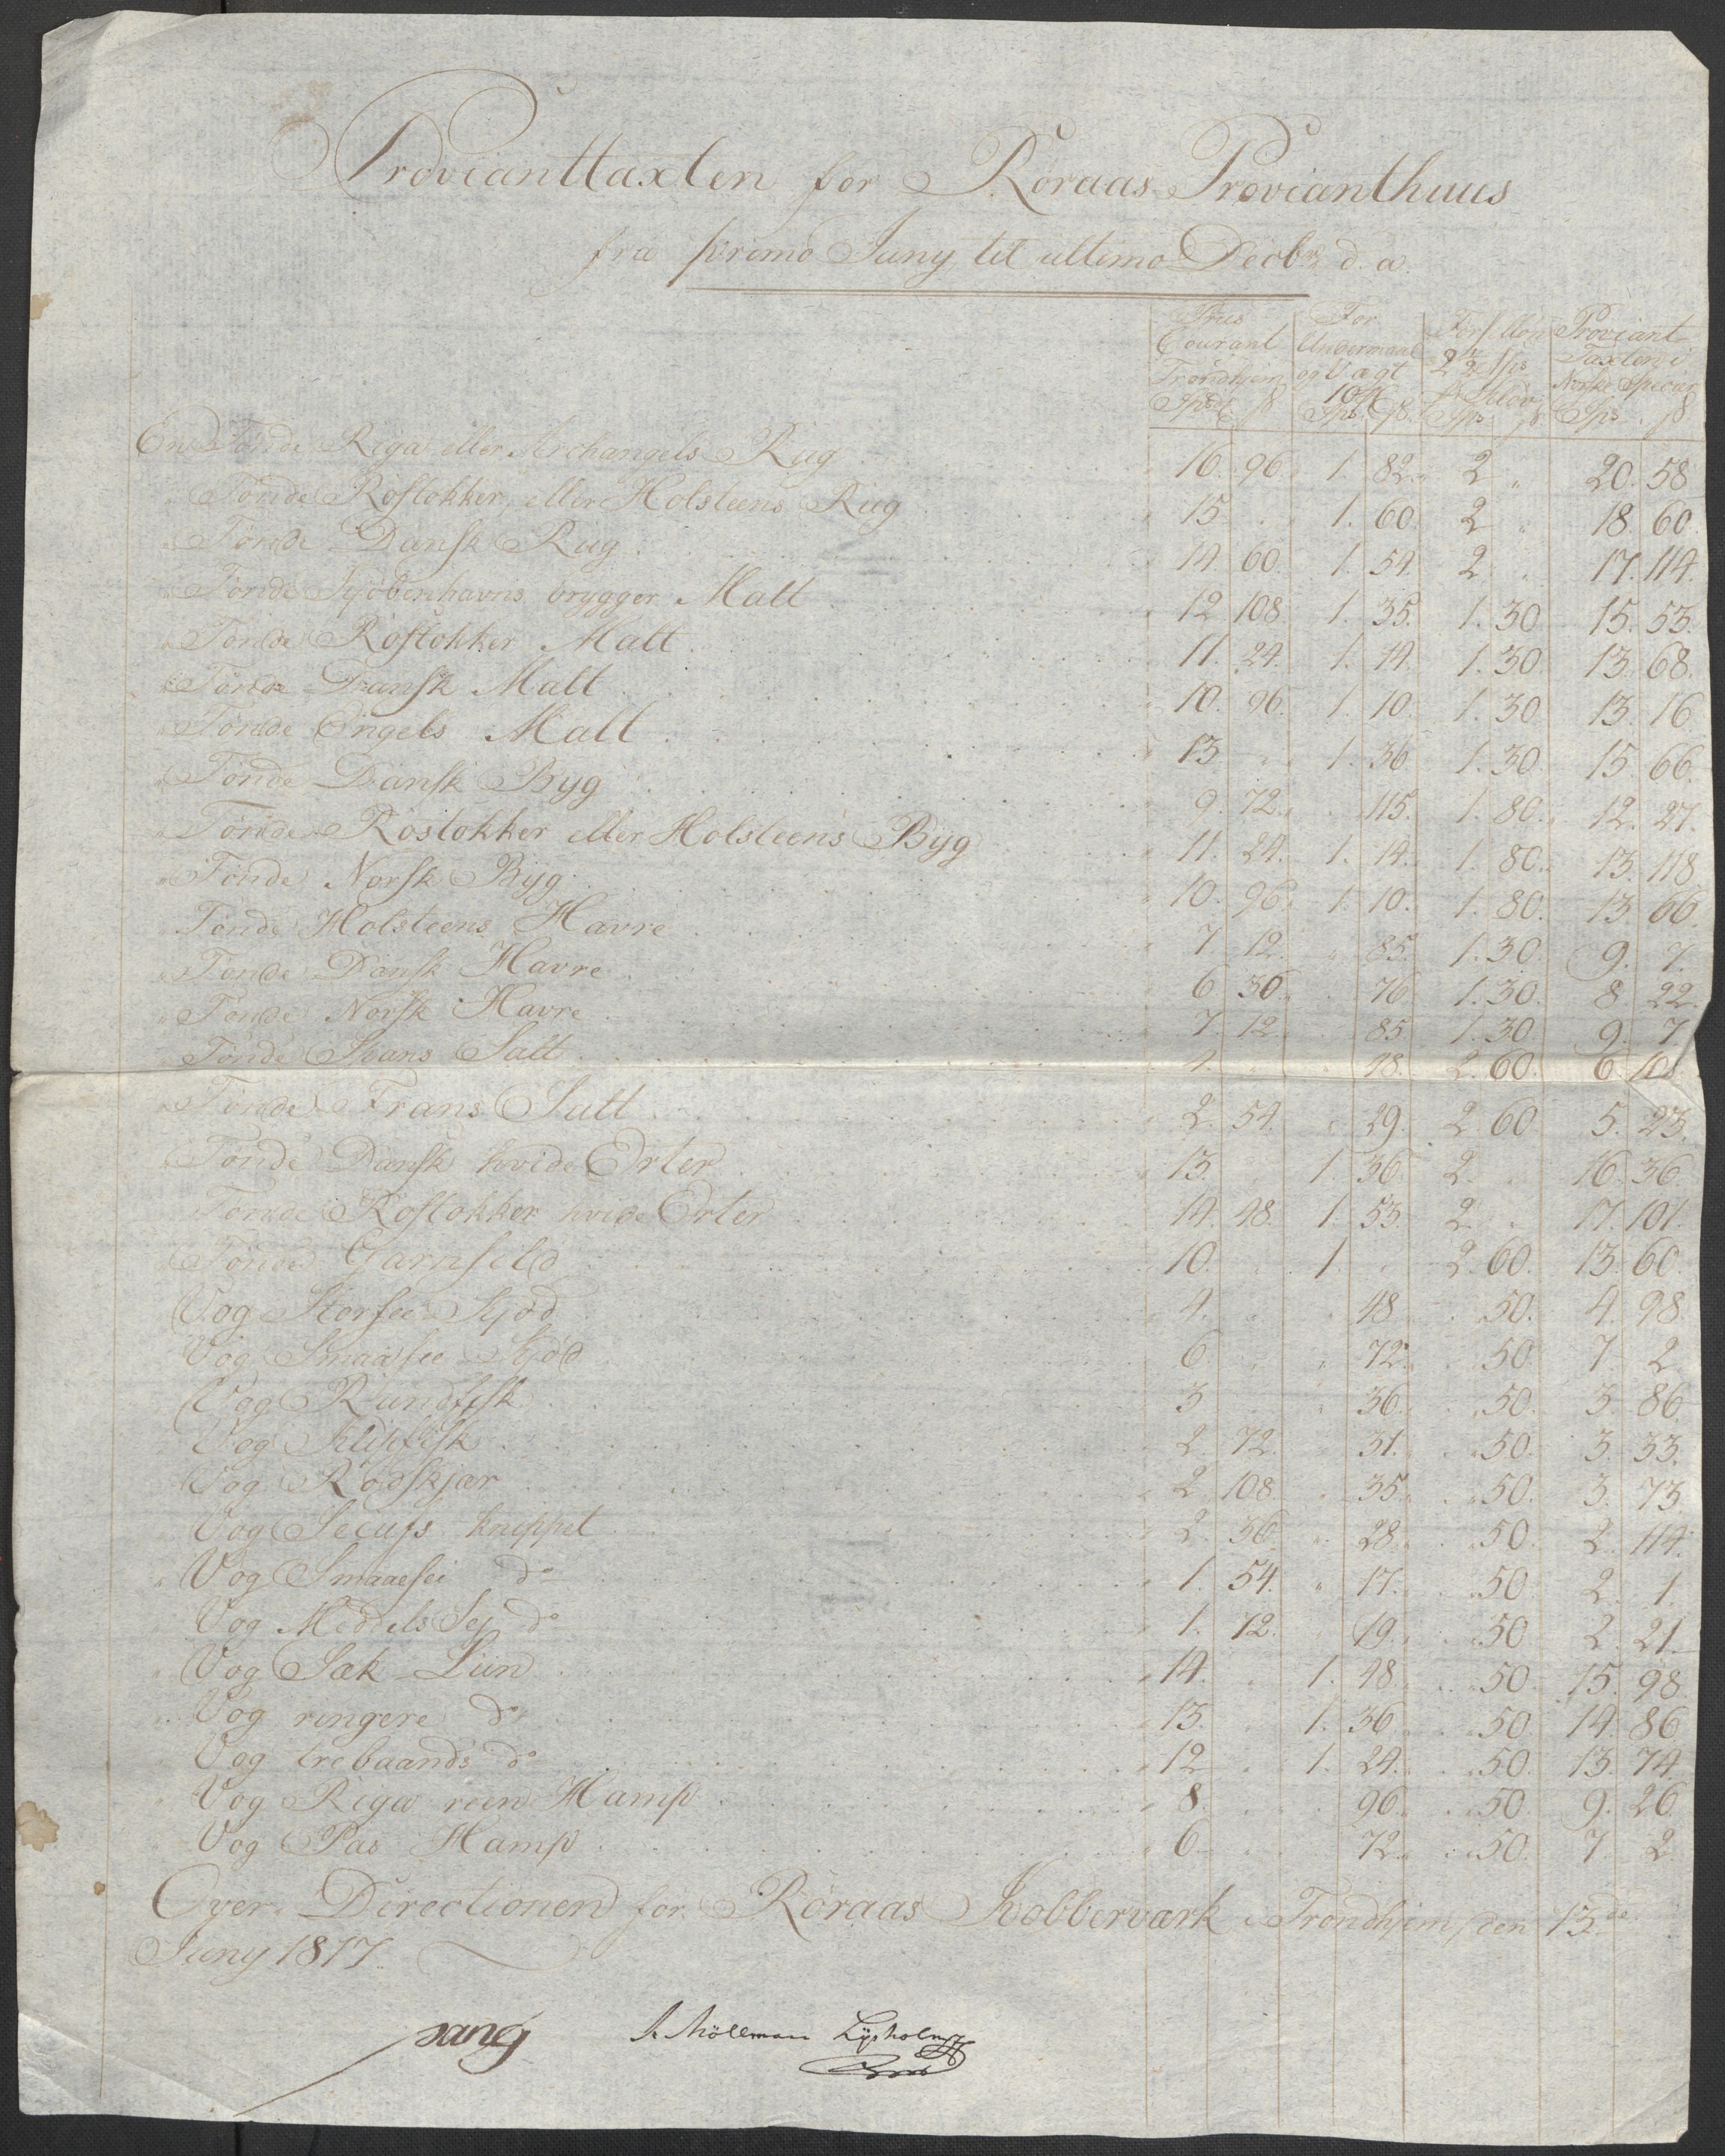 Provianttaxten for Röraas Provianthuus
fra primo Juny til ultimo Decbr. d. a.
Priis Courant Trondhjem Spd. ß | For Undermaal og Vægt 10 % Sps. ß. | Sps ß | Proviant Taxten i Norske Species Sps. ß
En Tønde Riga eller Archangels Rug 16. 96. 1. 82. 2 „ 20. 58
„ Tønde Rostokker eller Holsteens Rug 15. „ 1. 60. 2 „ 18. 60.
„ Tønde Dansk Rug 14. 60. 1. 54. 2 „ 17. 114.
„ Tønde Kjöbenhavns brygger Malt 12 108. 1. 35. 1. 30 15. 53.
„ Tønde Rostokker Malt 11. 24. 1. 14. 1. 30 13. 68.
„ Tønde Dansk Malt 10. 96. 1. 10. 1. 30 13. 16
„ Tønde Engels Malt 13 „ 1. 36 1. 30. 15. 66.
„ Tønde Dansk Byg 9. 72. „ 115. 1. 80. 12. 27.
„ Tønde Rostokker eller Holsteens Byg 11. 24. 1. 14. 1. 80. 13. 118
„ Tønde Norsk Byg 10. 96. 1. 10. 1. 80. 13. 66.
Tønde Holsteens Havre 7. 12. „ 85. 1. 30. 9. 7.
„ Tønde Dansk Havre 6 36. „ 76 1. 30. 8. 22.
„ Tønde Norsk Havre 7. 12 85 1. 30 9. 7.
„ Tønde Spans Salt 4. „ 48. 2. 60. 6. 108
„ Tønde Frans Salt 2. 54. „ 29. 2. 60 5. 23.
„ Tønde Dansk hvide Erter 13. 1. 36 2. „ 16. 36.
Tønde Rostokker hvide Erter 14. 48. 1. 53 2. „ 17. 101.
„ Tønde Garnsild 10. 1. „ 2. 60. 13. 60.
Vog Storfee Kjød 4. „ 48 „ 50. 4. 98.
Vog Smaafee Kjød 6. „ 72. „ 50 7. 2
Vog Rundfisk 3 „ 36. „ 50. 3. 86
Vog Klipfisk 2. 72. „ 31. „ 50. 3. 33.
Vog Rodskjær 2. 108 „ 35. „ 50. 3. 73
Vog knippet 2. 36. „ 28. „ 50. 2. 114.
„ Vog Smaaesei do 1. 54. „ 17. „ 50 2. 1.
Vog Meddels Sej do 1. 72. „ 19. „ 50 2. 21
„ Vog Sæk Liin 14. „ 1. 48. „ 50. 15. 98.
Vog ringere do 13. 1. 36 „ 50 14. 86
Vog trebaands do 12 „ 1. 24. „ 50. 13. 74.
Vog Riga reen Hamp 8. 96. „ 50. 9. 26.
Vog Pas Hamp 6. „ 72. „ 50. 7. 2.
Over Directionen for Röraas Kobberværk i Trondhjem den 13de
Juny 1817.
J. Möllman Lysholm